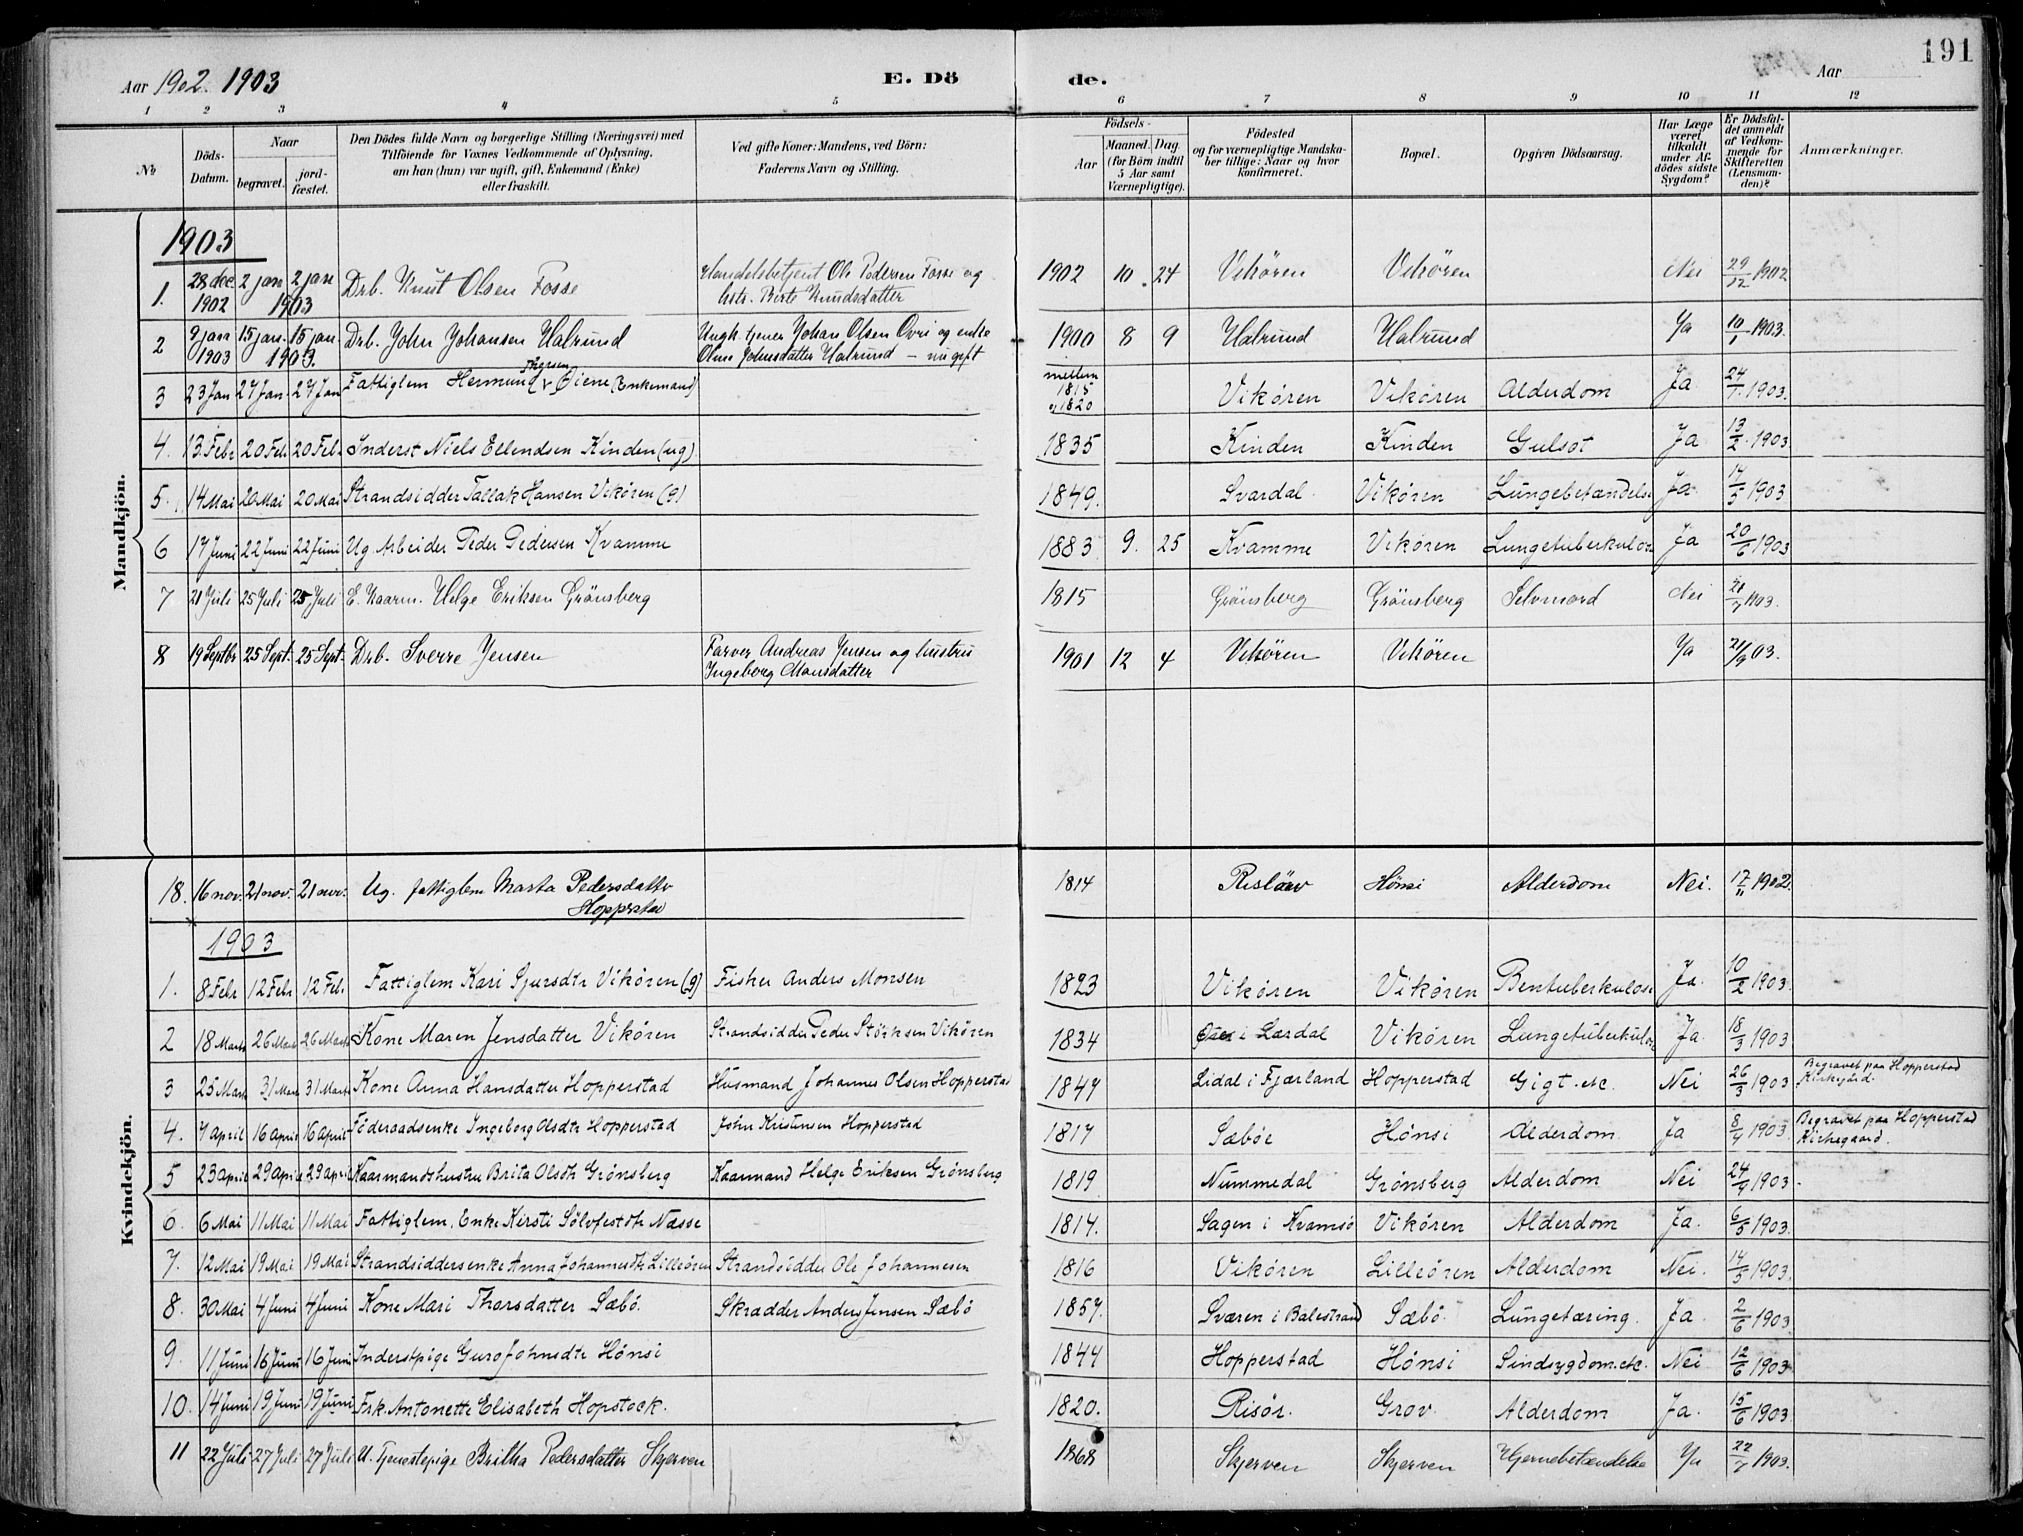 191
Aar 1902. 1903 E. Dö de. Aar
1 2 3 4 5 6 7 8 9 10 11 12
No Döds-Datum. Naar begravet. jordfæstet. Den Dödes fulde Navn og borgerlige Stilling (Næringsvei) med Tilföiende for Voxnes Vedkommende af Oplysning, om han (hun) var ugift, gift, Enkemand (Enke) eller fraskilt. Ved gifte Koner: Mandens, ved Börn: Faderens Navn og Stilling. Födsels- Aar Maaned. Dag. (for Börn indtil 5 Aar samt Værnepligtige). Födested og for værnepligtige Mandskaber tillige: Naar og hvor konfirmeret. Bopæl. Opgiven Dödsaarsag. Har Læge været tilkaldt under Afdödes sidste Sygdom? Er Dödsfaldet anmeldt af Vedkommende for Skifteretten (Lensmanden)? Anmærkninger.
Mandkjön.
1903
1. 28 dec. 1902 2 jan 2 jan 1903 Drb. Knut Olsen Fosse Handelsbetjent Ole Pedersen Fosse og hstr. Birte Knudsdatter 1902 10. 24 Vikören Vikören Nei 29/12 1902
2 9 jan 1903 15 jan. 15 jan. 1903. Drb. John Johansen Halrund Ungk. tjener Johan Olsen Övri og enke Oline Johnsdatter Halrund – nu gift 1900 8 9 Halrund Halrund Ja 10/1 1903.
3 23 Jan 27 Jan. 27 Jan Fattiglem Hermund Thorsen Øiene (Enkemand) mellem 1815 og 1820 Vikören Vikören Alderdom Ja 24/1. 1903
4. 13. Febr 20 Feb 20 Feb. Inderst Niels Ellendsen Kinden (ug) 1835 Kinden Kinden Gulsot Ja. 13/2. 1903.
5. 14 Mai 20 Mai 20 Mai Strandsidder Tallak Hansen Vikören (g) 1849. Svardal. Vikören Lungebetændelse Ja. 17/5 1903
6 17 Juni 22 Juni 22 Juni Ug Arbeider Peder Pedersen Kvamme 1883. 9. 25 Kvamme Vikören Lungetuberkulose Ja 20/6 1903
7 21 Juli 25 Juli 25 Juli E. Kaarm. Helge Eriksen Grönsberg 1815 Grönsberg Grönsberg Selvmord Nei 21/7 1903.
8 19 Septbr 25 Sept. 25 Sept. Drb. Sverre Jensen Farver Andreas Jensen og hustru Ingeborg Monsdatter 1901 12 4 Vikören Vikören Ja 21/9 03.
Kvindekjön.
18. 16 nov. 21 nov. 21 nov. Ug. fattiglem Marta Pedersdatter Hopperstad 1814 Rislöv Hönsi Alderdom Nei. 17/11 1902.
1903
1. 8 Febr 12 Febr 12 Feb. Fattiglem Kari Sjursdtr Vikören (g) Fisker Anders Monsen 1823 Vikören Vikören Bentuberkulose Ja. 10/2 1903.
2 18 Marts 26 Marts 26 Marts Kone Maren Jensdatter Vikören Strandsidder Peder Störksen Vikören 1834 i Lærdal Vikören Lungetuberkulose Ja. 18/3 1903
3 25 Marts 31 Marts 31 Marts Kone Anna Hansdatter Hopperstad Husmand Johannes Olsen Hopperstad 1847 Lidal i Fjærland Hopperstad Gigt. etc. Nei 26/3 1903 Begravet paa Hopperstad Kirkegård.
4. 7 april 16 April 16 april Föderaadsenke Ingeborg Olsdtr Hopperstad John Kristensen Hopperstad 1817 Sæböe Hönsi Alderdom. Ja 8/4 1903. Begravet paa Hopperstad Kirkegaard.
5 23 april 29 april 29 april Kaarmandshustru Brita Olsdtr Grönsberg Kaarmand Helge Eriksen Grönsberg 1819 Nummedal Grönsberg Alderdom Nei 24/4 1903.
6. 6 Mai 11 Mai 11 Mai Fattiglem, Enke Kirsti Sölvfestdtr Næsse 1814. Sagen i Kvamsö Vikören Alderdom Ja. 6/5 1903.
7. 12 Mai 19 Mai 19 Mai Strandsiddersenke Anna Johannesdtr Lilleören Strandsidder Ole Johannesen 1816 Vikören Lilleören Alderdom Nei. 14/5 1903.
8. 30 Mai 4 Juni 4 Juni Kone Mari Thorsdatter Sæbö. Skrædder Anders Jensen Sæbö 1857. Sværen i Balestrand Sæbö. Lungetæring. Ja. 2/6 1903.
9. 11 Juni 16 Juni 16 Juni Inderstpige Guro Johnsdtr Hönsi 1844 Hopperstad Hönsi Sindsygdom. etc. Nei 12/6 1903.
10. 14 Juni 19 Juni 19 Juni Frk. Antonette Elisabeth Hopstock. 1820. Risör. Grov. Alderdom Ja. 15/6 1903.
11 22 Juli 27 Juli 27 Juli U. Tjenestepige Britha Pedersdatter Skjerven 1868 Skjerven Skjerven Hjernebetændelse Ja 22/7 1903.